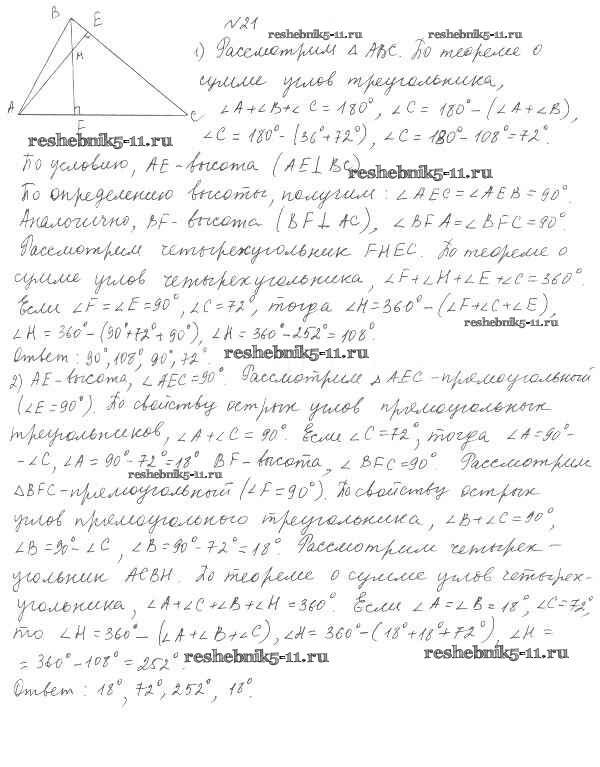 B
E
H
A
F
C
№21
reshebnik5-11.ru
reshebnik5-11.ru
1) Рассмотрим △ ABC. По теореме о
сумме углов треугольника,
∠A+∠B+∠C=180°, ∠C=180°-(∠A+∠B),
∠C=180°-(36°+72°), ∠C=180°-108°=72°.
reshebnik5-11.ru
По условию, AE-высота (AE⊥BC)
reshebnik5-11.ru
По определению высоты, получим: ∠AEC=∠AEB=90°.
Аналогично, BF-высота (BF⊥AC), ∠BFA=∠BFC=90°.
Рассмотрим четырехугольник FHEC. По теореме о
сумме углов четырехугольника, ∠F+∠H+∠E+∠C=360°.
Если ∠F=∠E=90°, ∠C=72°, тогда ∠H=360°-(∠F+∠C+∠E),
reshebnik5-11.ru
∠H=360°-(90°+72°+90°), ∠H=360°-252°=108°.
Ответ: 90°, 108°, 90°, 72°.
reshebnik5-11.ru
2) AE-высота, ∠AEC=90°. Рассмотрим △AEC-прямоугольный
(∠E=90°). По свойству острых углов прямоугольных
треугольников, ∠A+∠C=90°. Если ∠C=72°, тогда ∠A=90°-
-∠C, ∠A=90°-72°=18° BF-высота, ∠BFC=90°. Рассмотрим
reshebnik5-11.ru
△BFC-прямоугольный (∠F=90°). По свойству острых
углов прямоугольного треугольника, ∠B+∠C=90°,
∠B=90°-∠C, ∠B=90°-72°=18°. Рассмотрим четырех-
угольник ACBH. По теореме о сумме углов четырех-
угольника, ∠A+∠C+∠B+∠H=360°. Если ∠A=∠B=18°, ∠C=72°,
то ∠H=360°-(∠A+∠B+∠C), ∠H=360°-(18°+18°+72°), ∠H=
=360°-108°=252°.
reshebnik5-11.ru
reshebnik5-11.ru
Ответ: 18°, 72°, 252°, 18°.